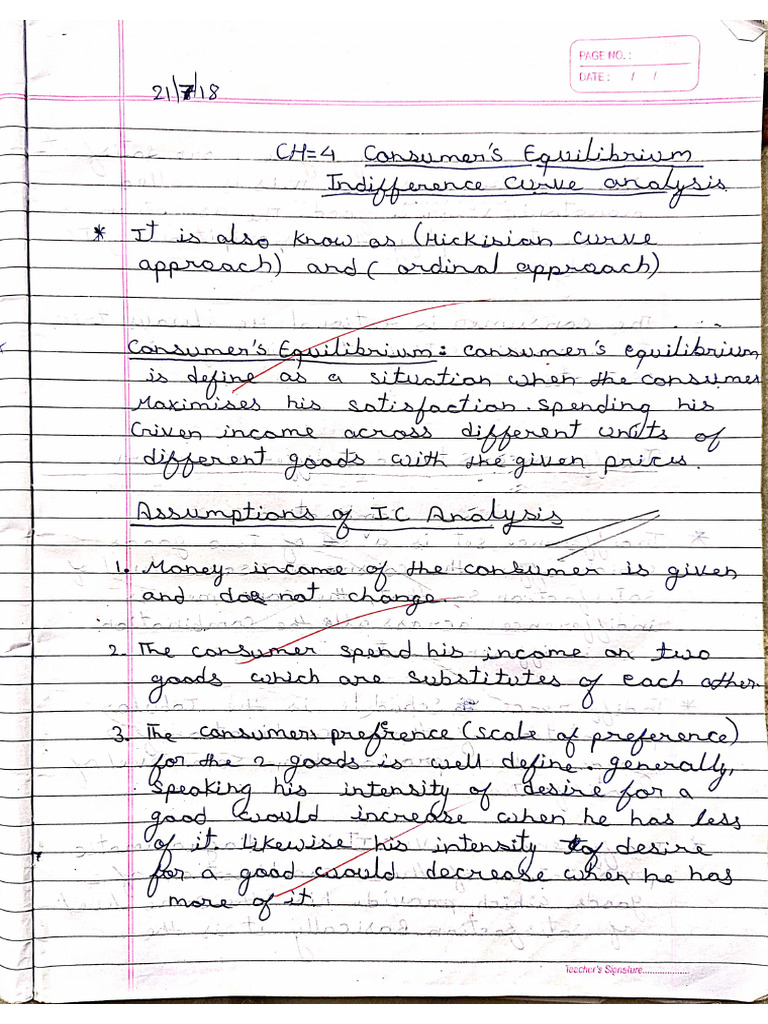 PAGE NO.:
DATE: / /
21/7/18
CH=4 Consumer's Equilibrium
Indifference curve analysis
* It is also know as (Hickisian curve
approach) and ( ordinal approach)
Consumer's Equilibrium: consumer's equilibrium
is define as a situation when the consumer
Maximises his satisfaction. spending his
Given income across different units of
different goods with the given prices.
Assumptions of IC Analysis
1. Money income of the consumer is given
and does not change.
2. The consumer spend his income on two
goods which are substitutes of each other.
3. The consumers preference (scale of preference)
for the 2 goods is well define. generally,
speaking his intensity of desire for a
good would increase when he has less
of it. Likewise his intensity of desire
for a good would decrease when he has
more of it.
Teacher's Signature...................